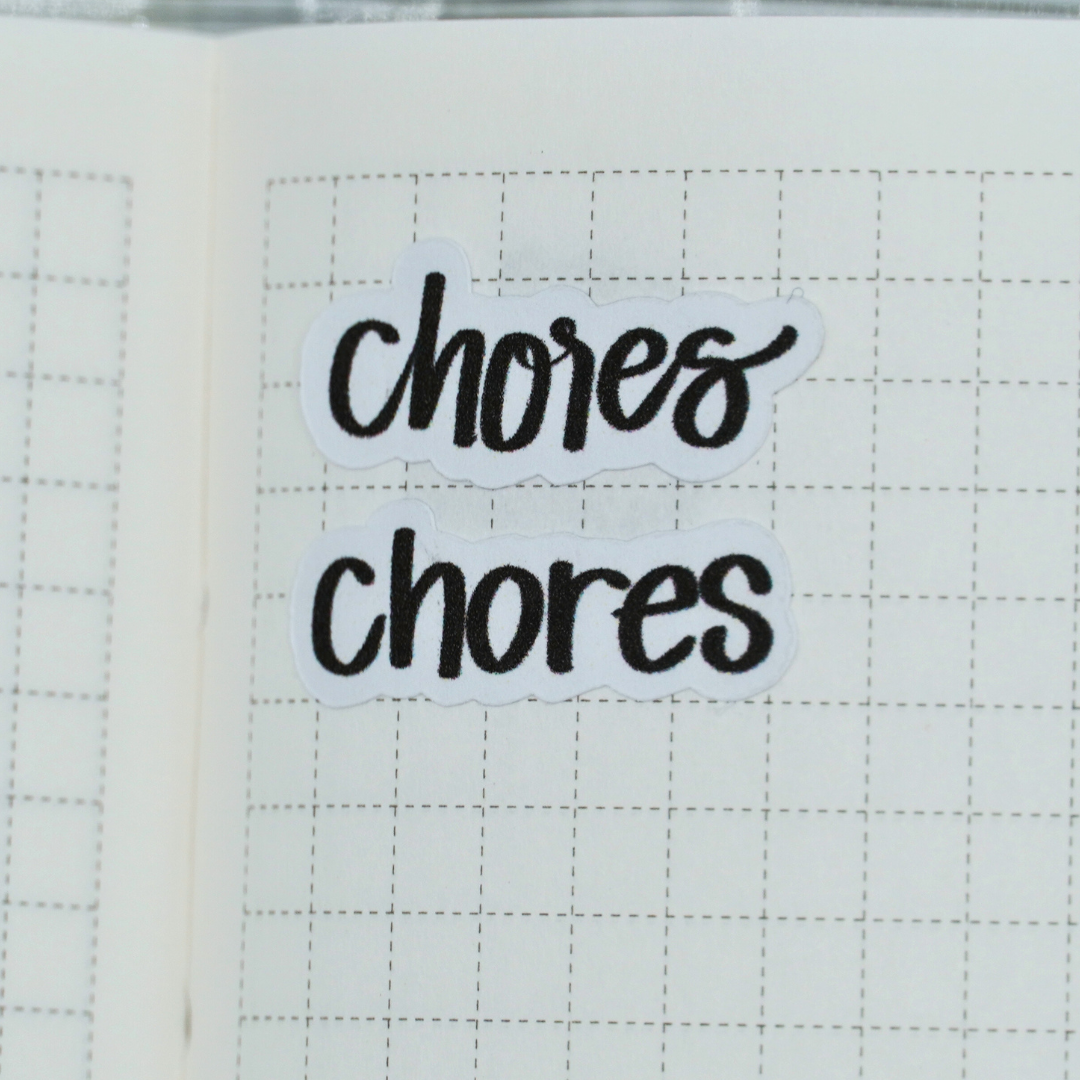 chores
chores